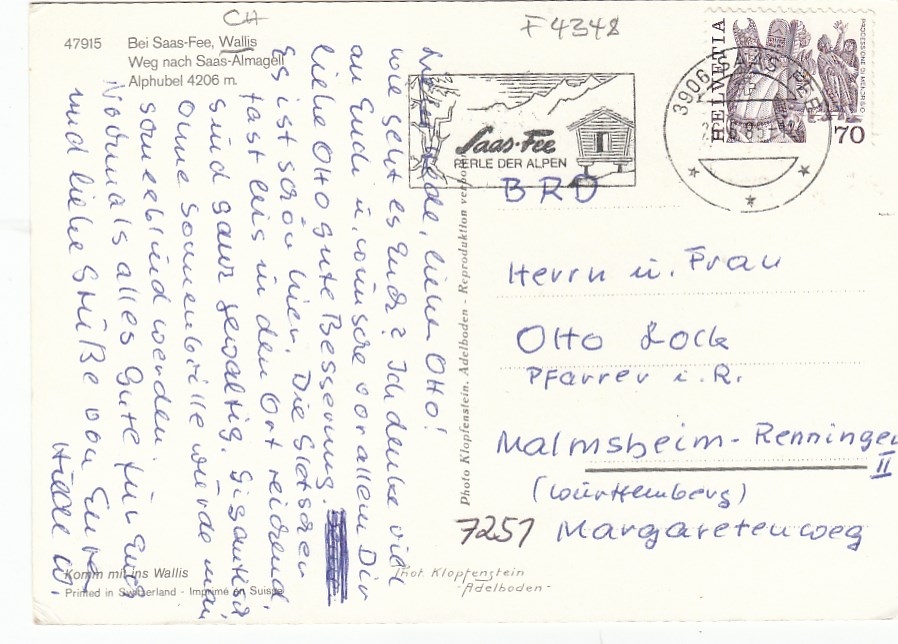 CH
F4348
47915 Bei Saas-Fee, Wallis
Weg nach Saas-Almagell
Alphubel 4206 m.
Liebe, lieber Otto!
wie geht es Euch? Ich denke viel
an Euch u. wünsche vor allem Dir
liebe Otto gute Besserung.
Es ist schön hier. Die Gletscher
fast bis in den Ort reichend,
sind ganz gewaltig. Gigantisch
Ohne Sonnenbrille würde man
schneeblind werden.
Nochmals alles Gute für Euch
und liebe Grüße von Eurer
Hilde W.
Komm mit ins Wallis
Printed in Switzerland - Imprimé en Suisse
Photo Klopfenstein, Adelboden - Reproduktion verboten
Saas-Fee
PERLE DER ALPEN
3906 SAAS-FEE
HELVETIA
70
BRD
Herrn u. Frau
Otto Lock
Pfarrer i. R.
Malmsheim-Renningen
II
(Württemberg)
7251 Margaretenweg
Phot. Klopfenstein
-Adelboden-